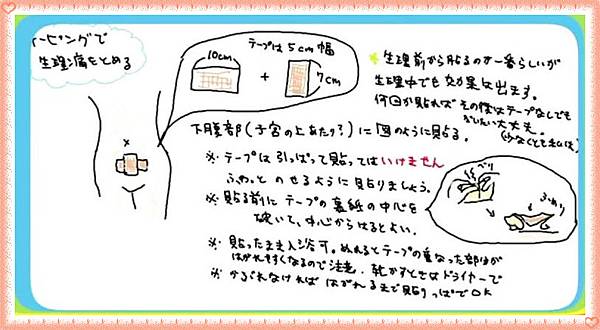 テーピングで
生理痛をとめる
テープは5cm幅
10cm
+
7cm
* 生理前から貼るのが一番らしいが
生理中でも効果は出ます。
何回か貼れば その後はテープなしでも
だいたい大丈夫。
(少なくとも私は)
下腹部(子宮の上あたり?)に図のように貼る。
※ テープは引っぱって貼ってはいけません
ふわっと のせるように貼りましょう。
※ 貼る前にテープの裏紙の中心を
破いて、中心からはるとよい。
ベリ
ふわり
※ 貼ったまま入浴可。ぬれるとテープの重なった部分が
はがれやすくなるので注意。乾かすときはドライヤーで
※ かぶれなければ はがれるまで貼りっぱでOK